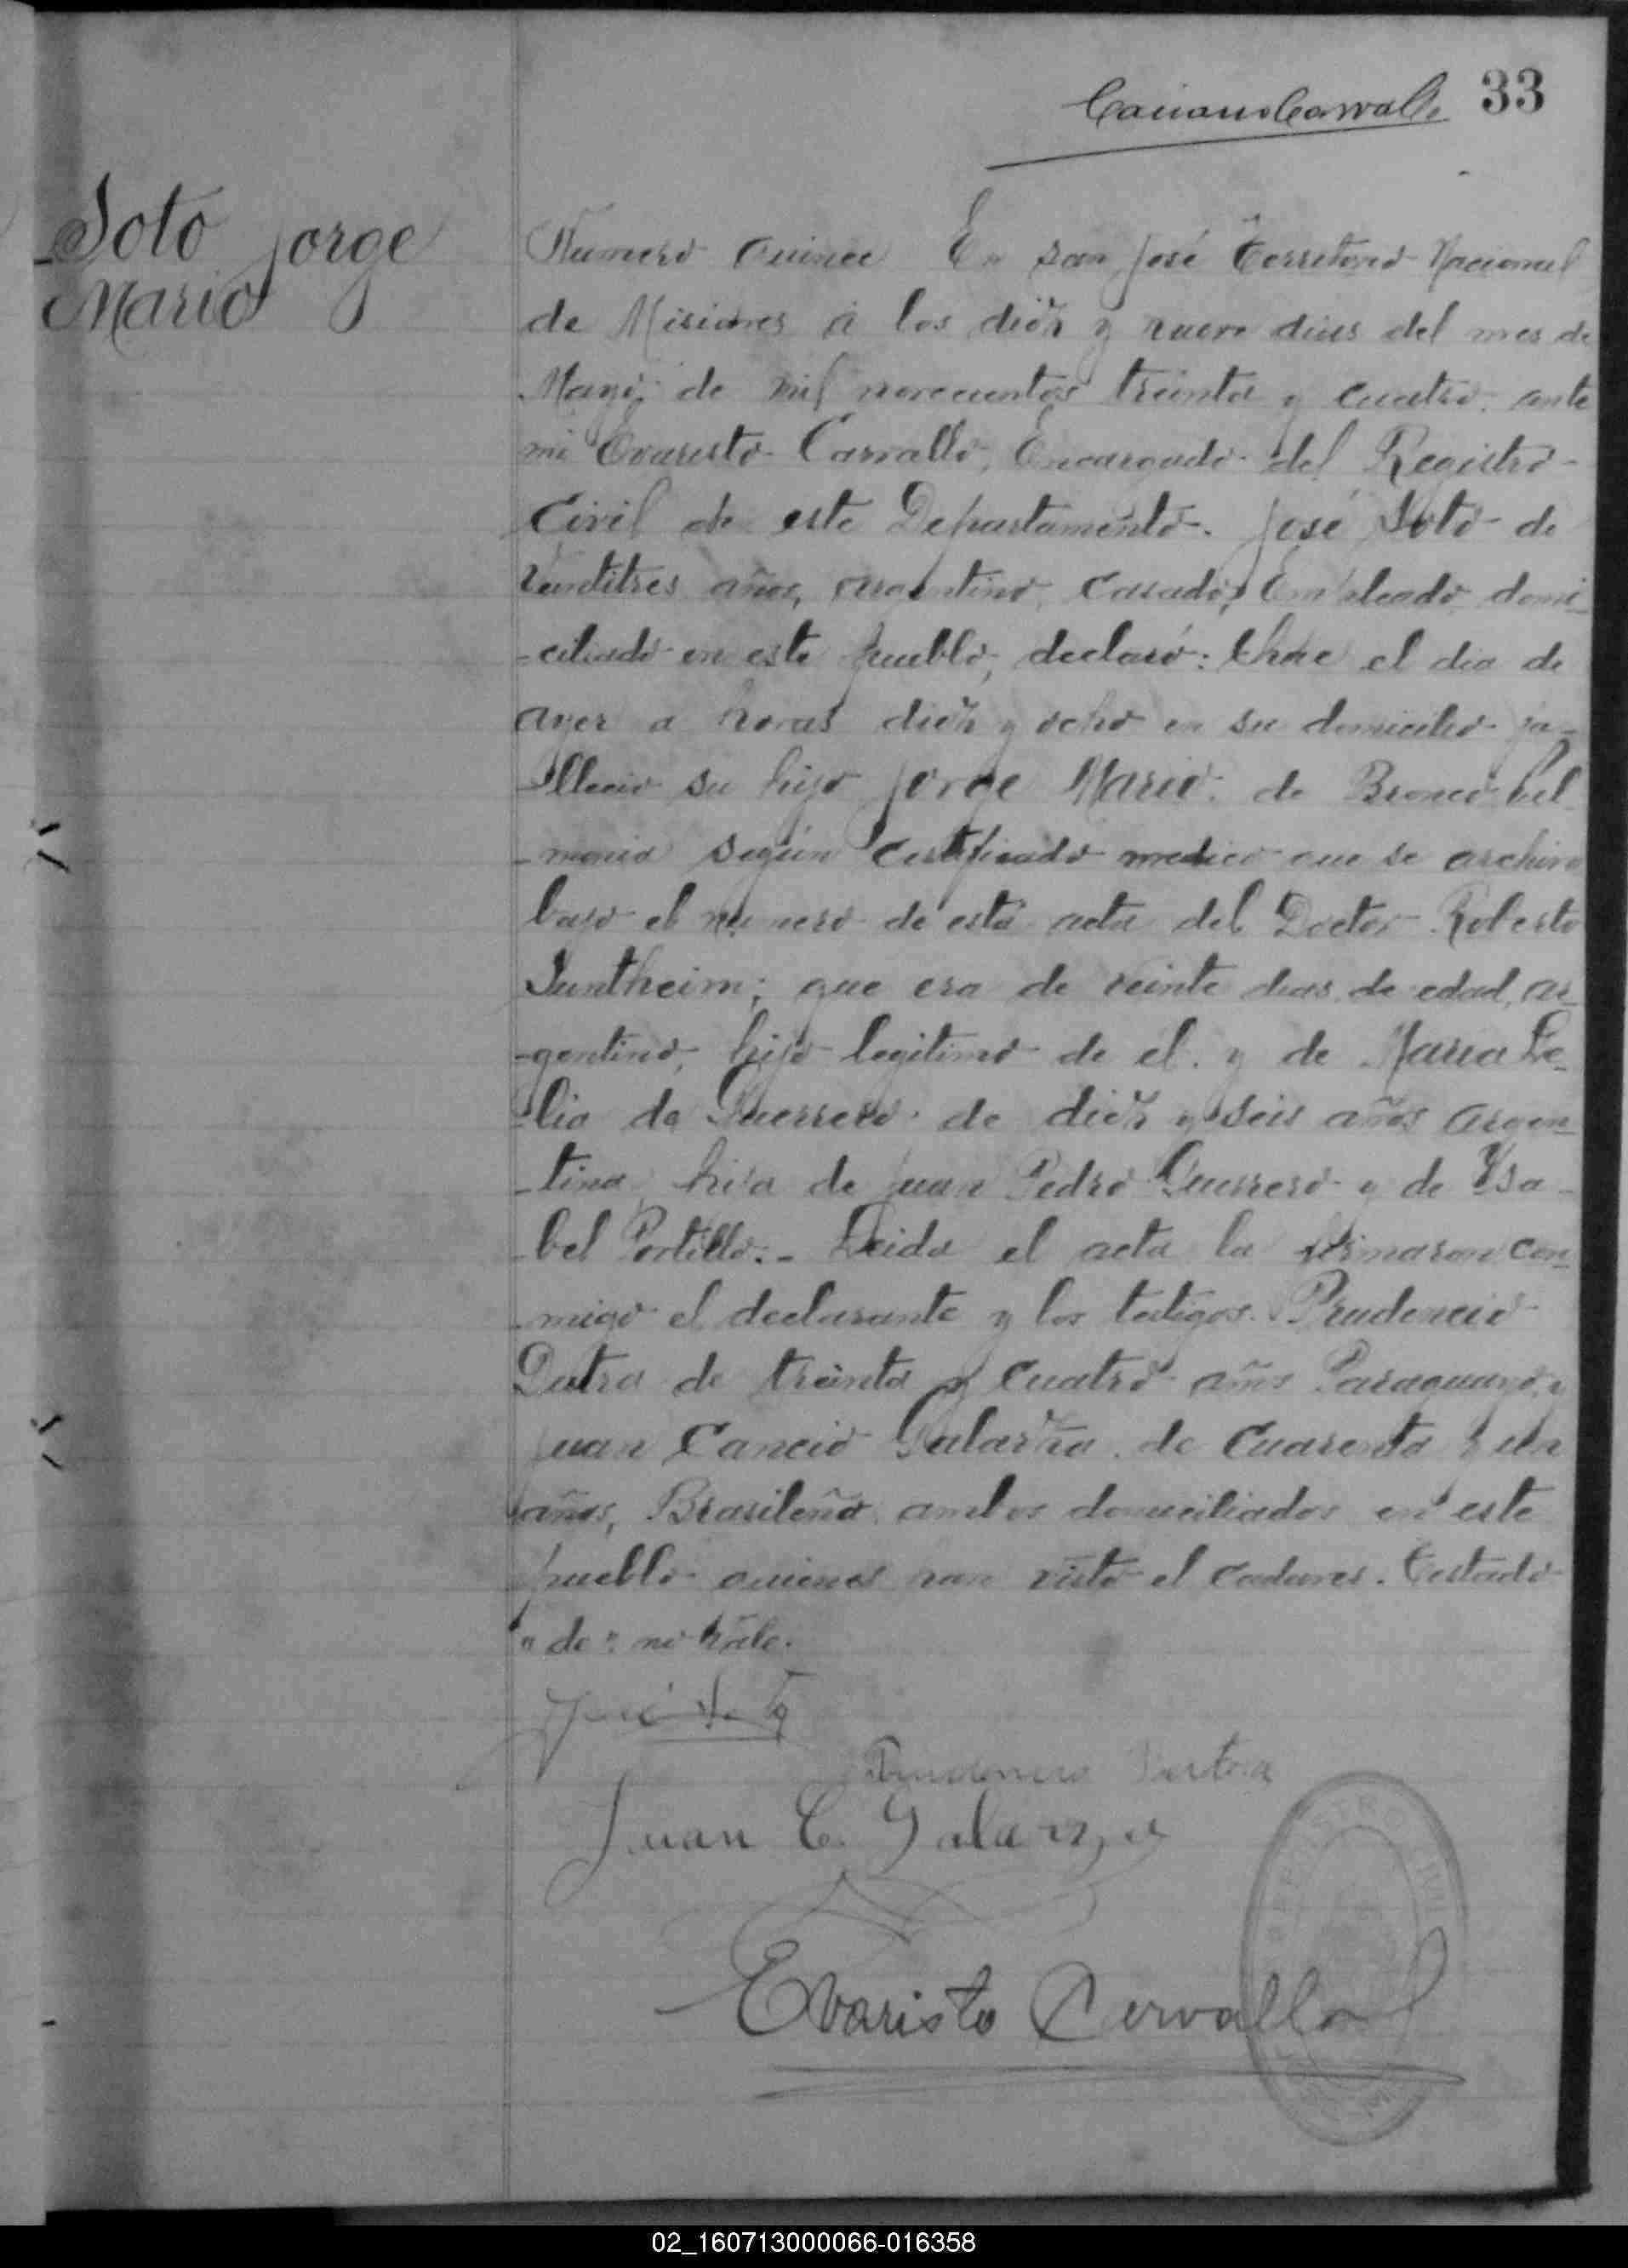 33
Soto Jorge
Mario
Numero quince En San José Territorio Nacional
de Misiones á los diéz y nueve dias del mes de
Mayo, de mil novecientos treinta y cuatro, ante
mi Evaristo Carvallo, Encargado del Registro
Civil de este Departamento. José Soto de
veintitres años, argentino, casado, Empleado domi-
-ciliado en este pueblo, declaró: Que el dia de
ayer a horas diéz y ocho en su domicilio fa-
-llecio su hijo Jorge Mario de Bronco pul
-monia según certificado medico que se archiva
bajo el numero de esta acta del Doctor Roberto
Suntheim; que era de veinte dias de edad, ar-
-gentino, hijo legitimo de el. y de Maria De-
-lia de Guerrero de diéz y seis años argen-
-tina hija de Juan Pedro Guerrero y de Ysa-
-bel Portillo.- Leida el acta la firmaron con-
-migo el declarante y los testigos. Prudencio
Dutra de treinta y cuatro años Paraguayo, y
Juan Cancio Galarza de cuarenta y un
años, Brasileño ambos domiciliados en este
pueblo quienes han visto el cadaver. Testado
"de" no vale.
José Soto
Prudencio
Juan C. Galarza
Evaristo Cervallo
REGISTRO CIVIL
02_160713000066-016358